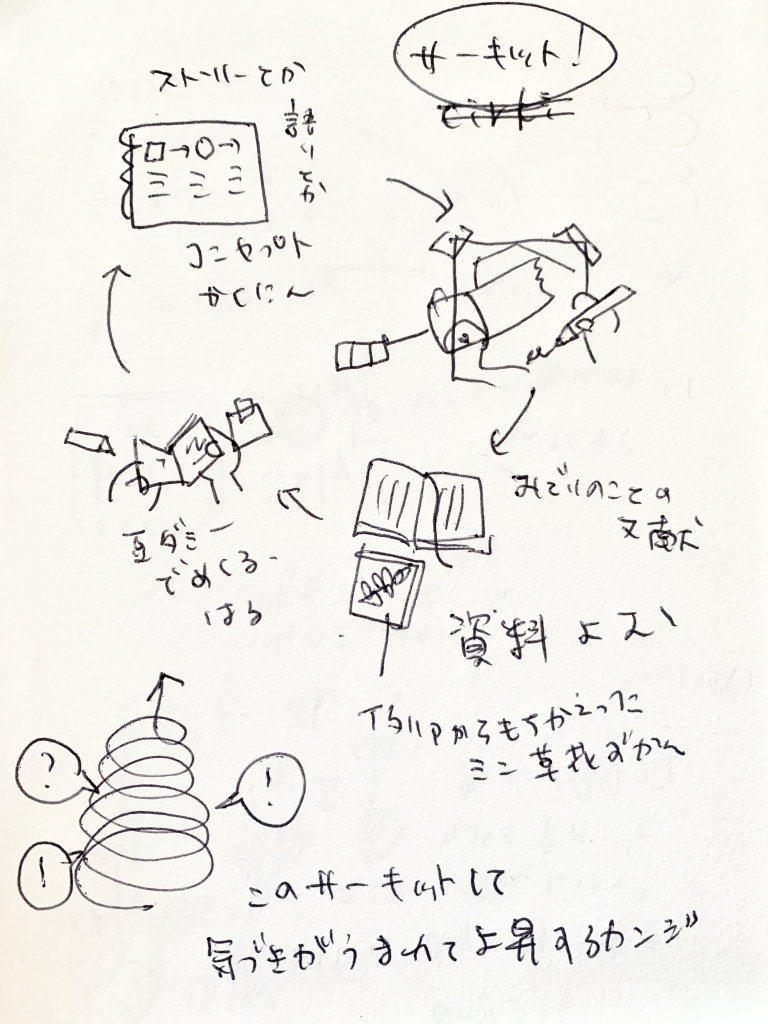 サーキット!
ストーリーとか
語りとか
コンセプト
かくにん
みどりのことの
文献
資料よみ
からもちかえった
ミニ草花ずかん
豆ダミー
でめくる・
はる
?
!
!
このサーキットして
気づきがうまれて上昇するカンジ